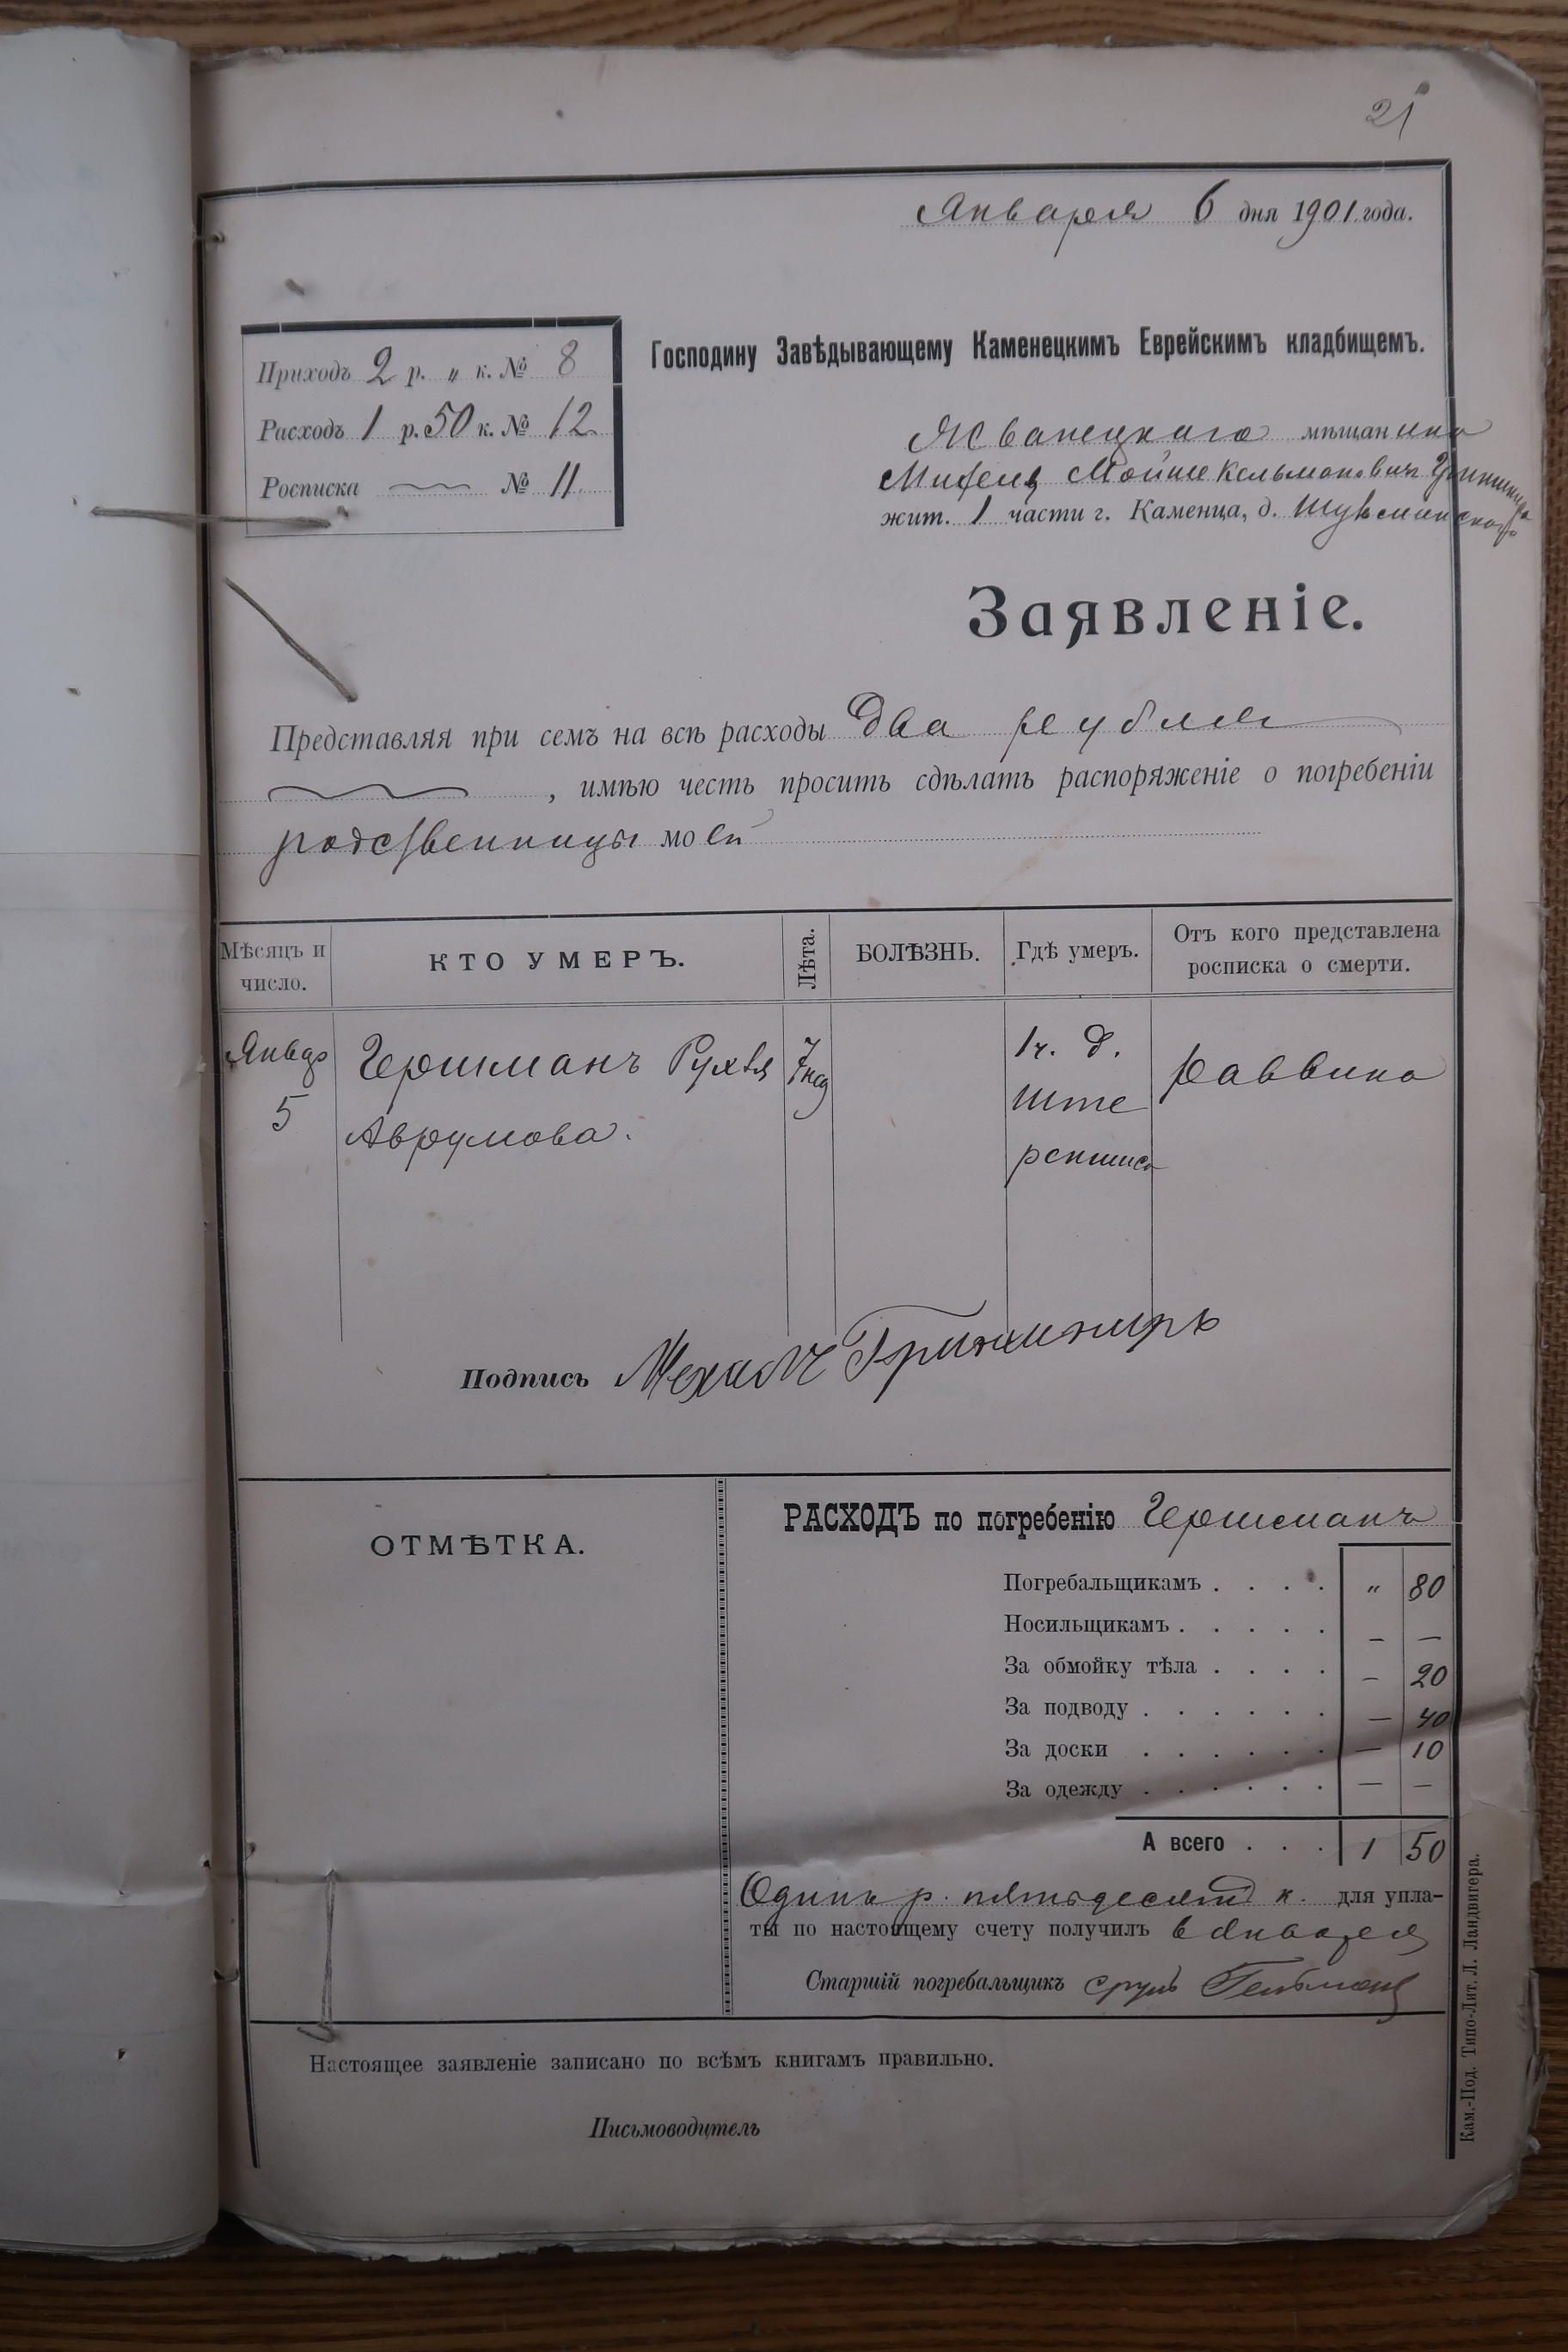 21
Января 6 дня 1901 года.
Приходъ 2 р. „ к. № 8
Расходъ 1 р. 50 к. № 12.
Росписка № 11
Господину Завѣдывающему Каменецкимъ Еврейскимъ кладбищемъ.
Жванецкаго мѣщанина
Мойше Кельмановича
жит. 1 части г. Каменца, д.
Заявленіе.
Представляя при семъ на всѣ расходы Два рубля
, имѣю честь просить сдѣлать распоряженіе о погребеніи
родственницы моей
Мѣсяцъ и число.
КТО УМЕРЪ.
Лѣта.
БОЛѢЗНЬ.
Гдѣ умеръ.
Отъ кого представлена росписка о смерти.
Январ 5
Гершманъ Рухля
Аврумова.
7 нед
1 ч. д.
Ште
реншиса
Раввина
Подпись
РАСХОДЪ по погребенію Гершманъ
ОТМѢТКА.
Погребальщикамъ . . . . „ 80
Носильщикамъ . . . . . — —
За обмойку тѣла . . . . — 20
За подводу . . . . . . — 40
За доски . . . . . . — 10
За одежду . . . . . . — —
А всего . . . 1 50
Одинъ р. пятьдесятъ к. для упла-
ты по настоящему счету получилъ 6 Января
Старшій погребальщикъ Сруль Гельманъ
Настоящее заявленіе записано по всѣмъ книгамъ правильно.
Письмоводитель
Кам.-Под. Типо-Лит. Л. Ландвигера.